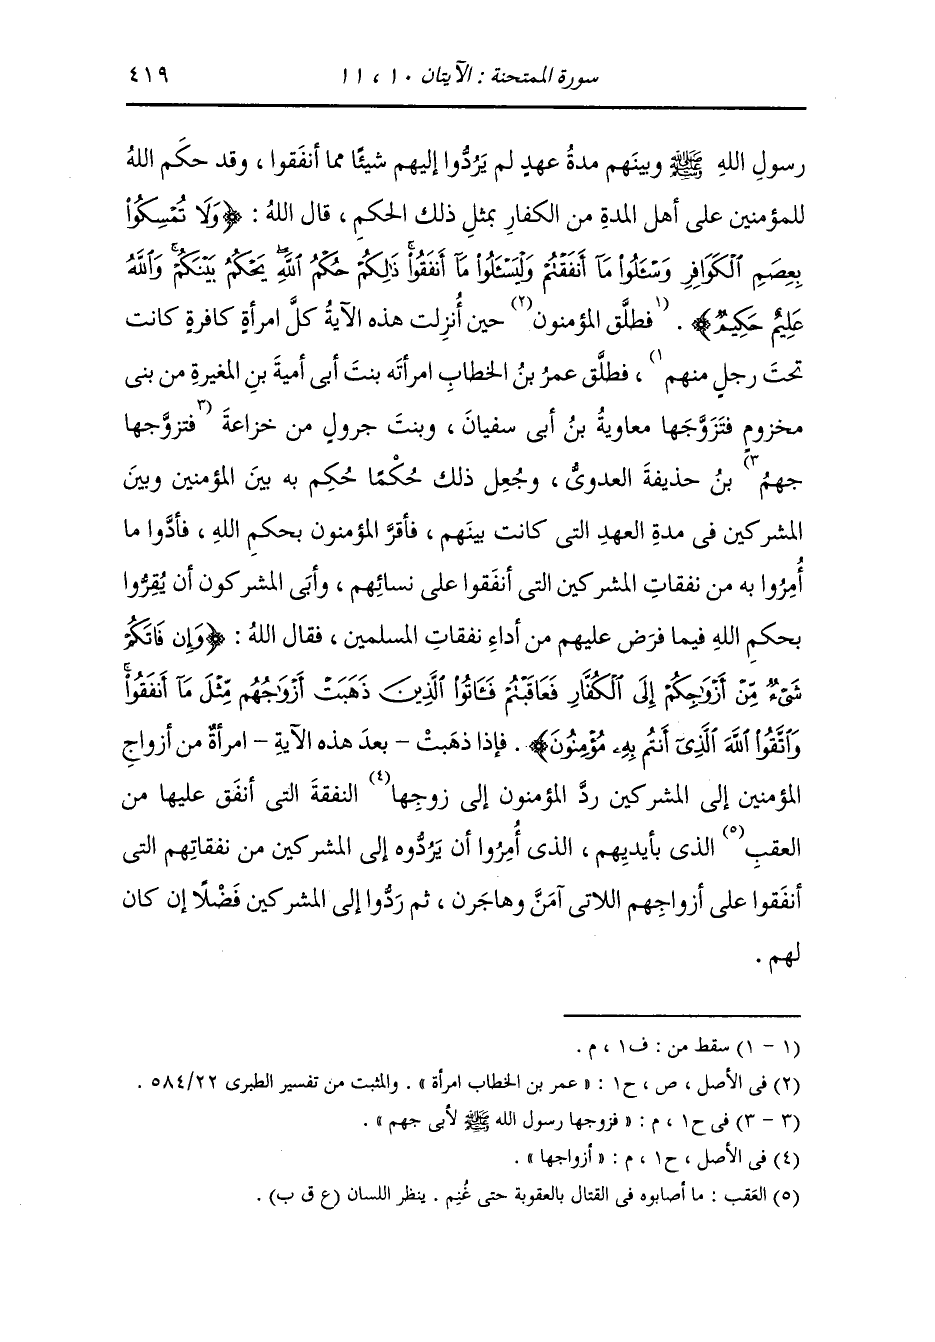 سورة الممتحنة : الآيتان ١٠ ، ١١ ٤١٩
رسولِ اللهِ ﷺ وبينَهم مدةُ عهدٍ لم يَرُدُّوا إليهم شيئًا مما أنفَقوا ، وقد حكَم اللهُ
للمؤمنين على أهل المدةِ من الكفارِ بمثلِ ذلك الحكمِ ، قال اللهُ : ﴿وَلَا تُمْسِكُوا۟
بِعِصَمِ ٱلْكَوَافِرِ وَسْـَٔلُوا۟ مَآ أَنفَقْتُمْ وَلْيَسْـَٔلُوا۟ مَآ أَنفَقُوا۟ۚ ذَٰلِكُمْ حُكْمُ ٱللَّهِۖ يَحْكُمُ بَيْنَكُمْۚ وَٱللَّهُ
عَلِيمٌ حَكِيمٌ﴾ . (١ فطلَّق المؤمنون(٢) حين أُنزِلت هذه الآيةُ كلَّ امرأةٍ كافرةٍ كانت
تحتَ رجلٍ منهم ١) ، فطلَّق عمرُ بنُ الخطابِ امرأتَه بنتَ أبى أميةَ بنِ المغيرةِ من بنى
مخزومٍ فتَزَوَّجَها معاويةُ بنُ أبى سفيانَ ، وبنتَ جرولٍ من خزاعةَ (٣ فتزوَّجها
جهمُ ٣) بنُ حذيفةَ العدوىُّ ، وجُعِل ذلك حُكْمًا حُكِم به بينَ المؤمنين وبينَ
المشركين فى مدةِ العهدِ التى كانت بينَهم ، فأقرَّ المؤمنون بحكمِ اللهِ ، فأدَّوا ما
أُمِرُوا به من نفقاتِ المشركين التى أنفَقوا على نسائِهم ، وأبَى المشركون أن يُقِرُّوا
بحكمِ اللهِ فيما فرَض عليهم من أداءِ نفقاتِ المسلمين ، فقال اللهُ : ﴿وَإِن فَاتَكُمْ
شَىْءٌ مِّنْ أَزْوَٰجِكُمْ إِلَى ٱلْكُفَّارِ فَعَاقَبْتُمْ فَـَٔاتُوا۟ ٱلَّذِينَ ذَهَبَتْ أَزْوَٰجُهُم مِّثْلَ مَآ أَنفَقُوا۟ۚ
وَٱتَّقُوا۟ ٱللَّهَ ٱلَّذِىٓ أَنتُم بِهِۦ مُؤْمِنُونَ﴾ . فإذا ذهَبتْ - بعدَ هذه الآيةِ - امرأةٌ من أزواجِ
المؤمنين إلى المشركين ردَّ المؤمنون إلى زوجِها(٤) النفقةَ التى أنفَق عليها من
العقبِ(٥) الذى بأيديِهم ، الذى أُمِرُوا أن يَرُدُّوه إلى المشركين من نفقاتِهم التى
أنفَقوا على أزواجِهم اللاتى آمَنَّ وهاجَرن ، ثم رَدُّوا إلى المشركين فَضْلًا إن كان
لهم .
(١ - ١) سقط من : ف١ ، م .
(٢) فى الأصل ، ص ، ح١ : « عمر بن الخطاب امرأة » . والمثبت من تفسير الطبرى ٥٨٤/٢٢ .
(٣ - ٣) فى ح١ ، م : « فزوجها رسول الله ﷺ لأبى جهم » .
(٤) فى الأصل ، ح١ ، م : « أزواجها » .
(٥) العَقب : ما أصابوه فى القتال بالعقوبة حتى غُنِم . ينظر اللسان (ع ق ب) .